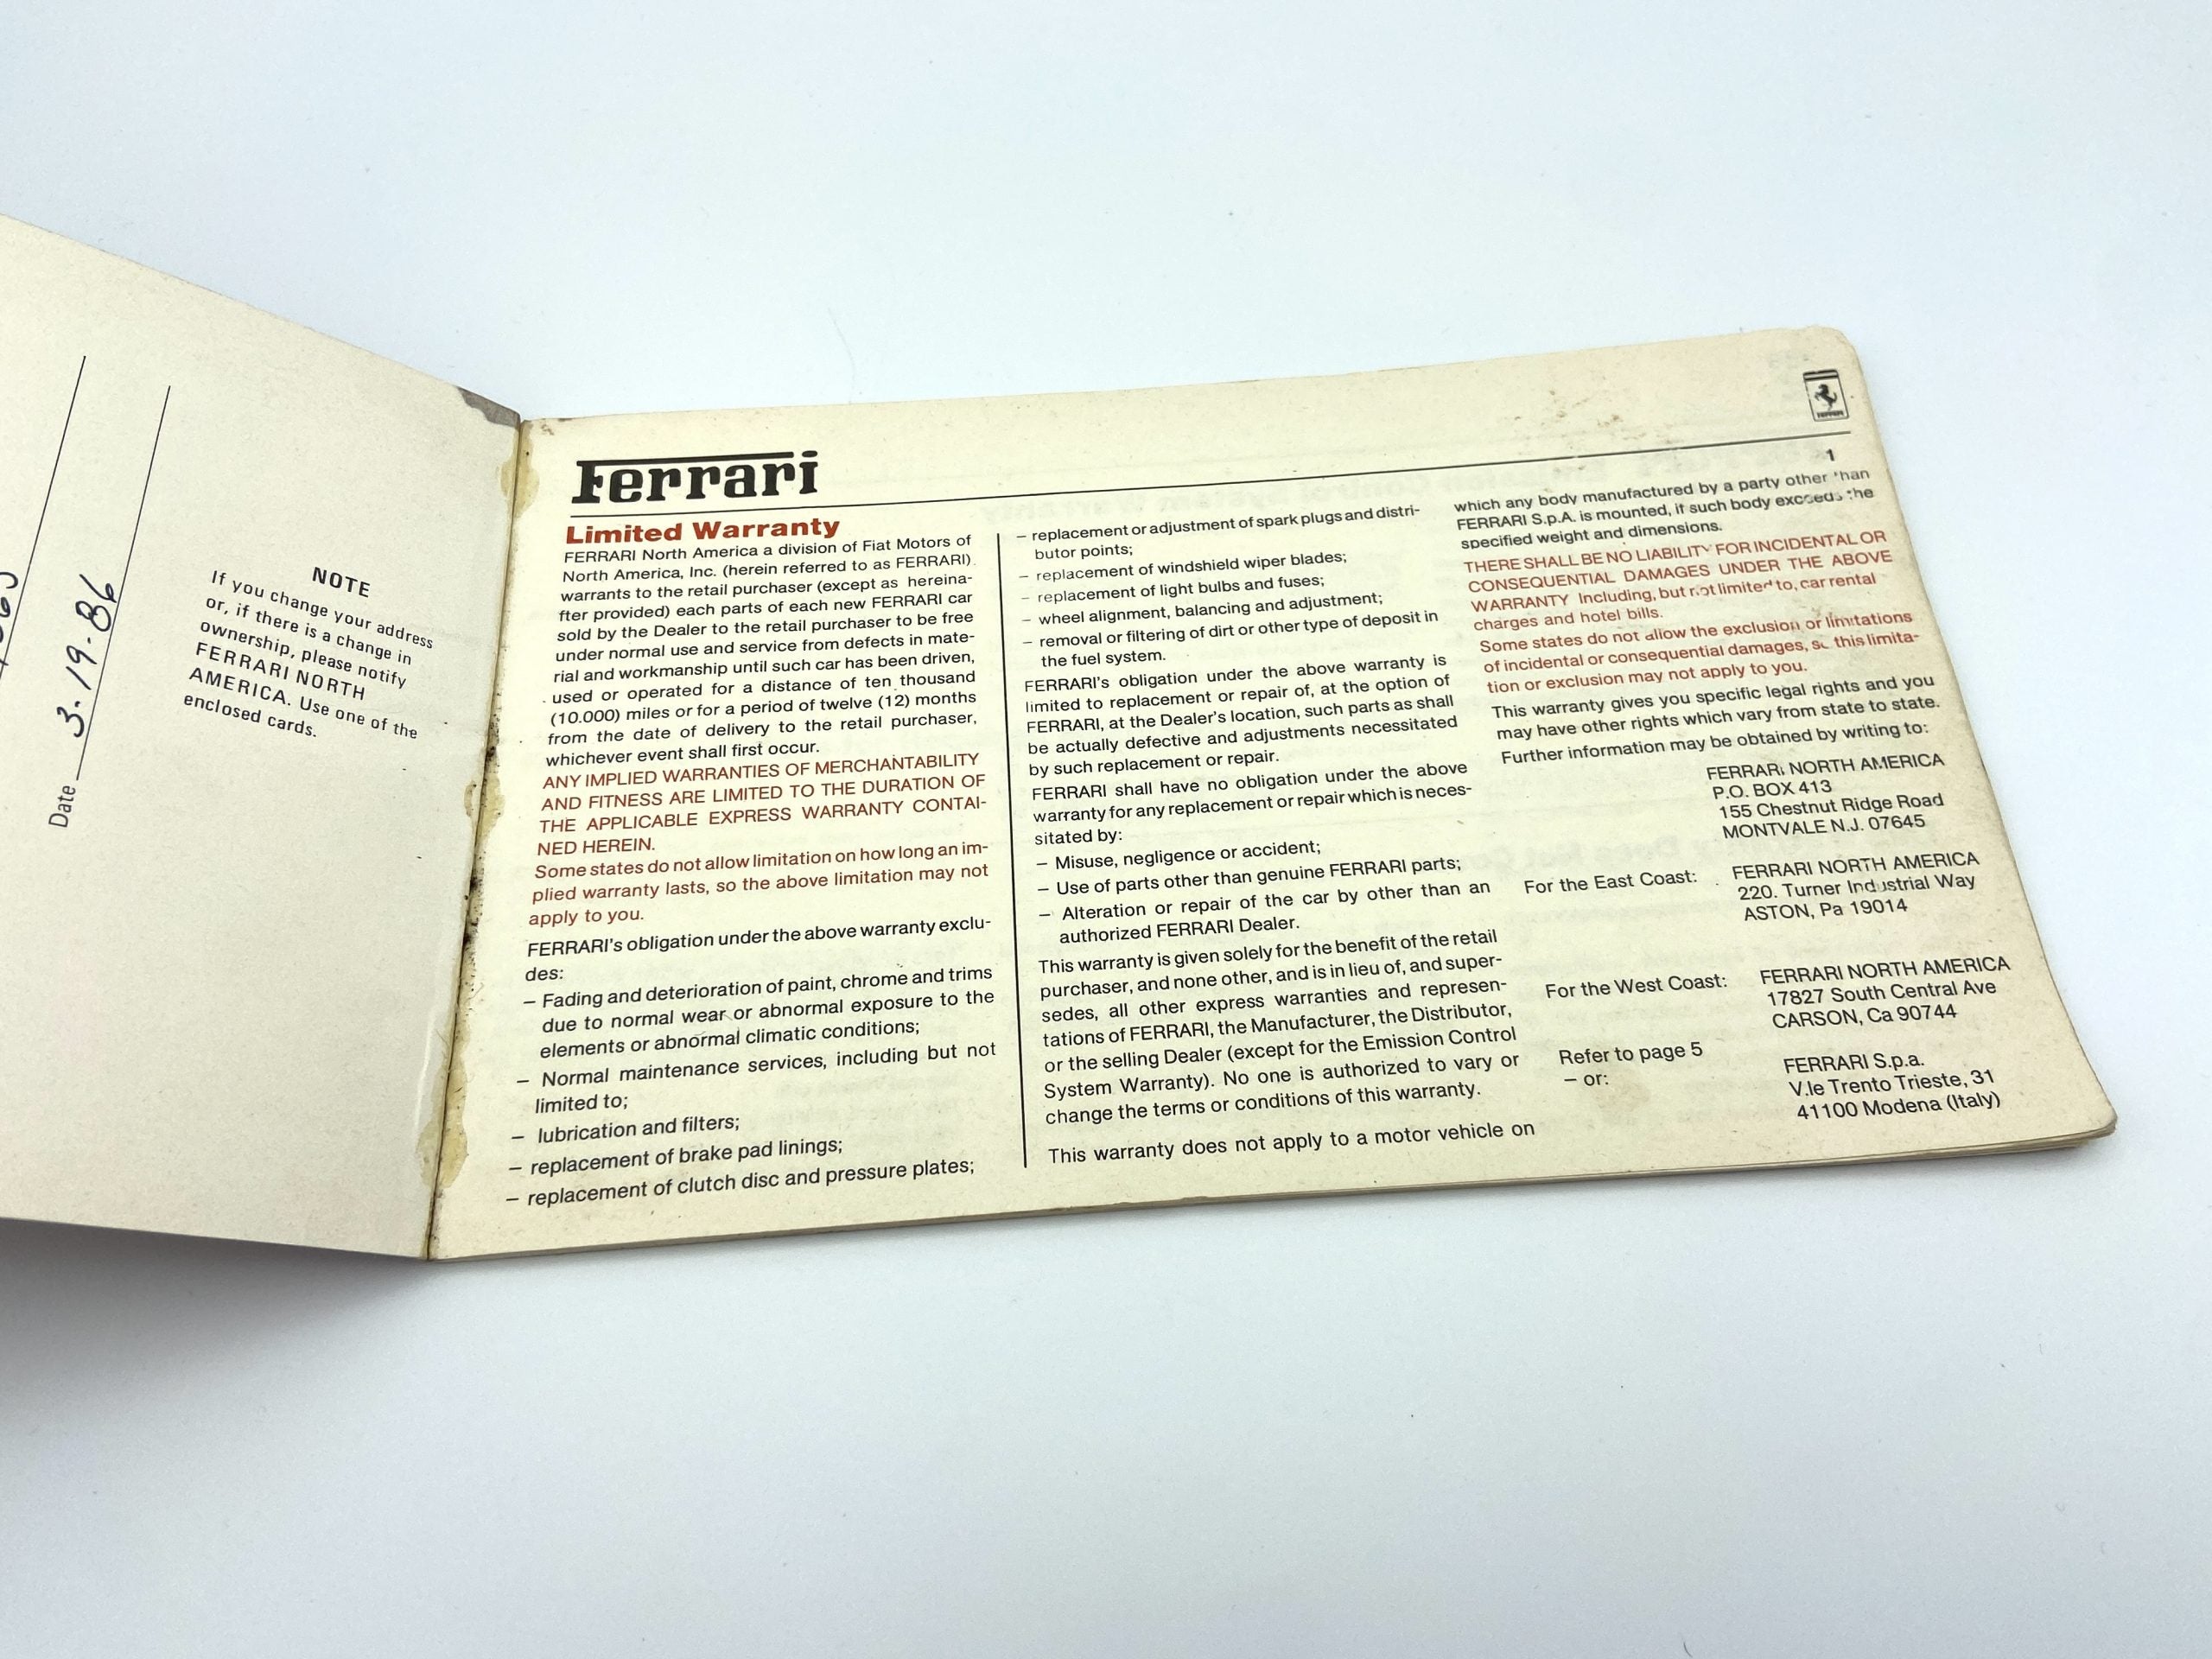 Date 3-19-86
NOTE
If you change your address
or, if there is a change in
ownership, please notify
FERRARI NORTH
AMERICA. Use one of the
enclosed cards.
Ferrari
Ferrari
1
Limited Warranty
FERRARI North America a division of Fiat Motors of
North America, Inc. (herein referred to as FERRARI)
warrants to the retail purchaser (except as hereina-
fter provided) each parts of each new FERRARI car
sold by the Dealer to the retail purchaser to be free
under normal use and service from defects in mate-
rial and workmanship until such car has been driven,
used or operated for a distance of ten thousand
(10.000) miles or for a period of twelve (12) months
from the date of delivery to the retail purchaser,
whichever event shall first occur.
ANY IMPLIED WARRANTIES OF MERCHANTABILITY
AND FITNESS ARE LIMITED TO THE DURATION OF
THE APPLICABLE EXPRESS WARRANTY CONTAI-
NED HEREIN.
Some states do not allow limitation on how long an im-
plied warranty lasts, so the above limitation may not
apply to you.
FERRARI's obligation under the above warranty exclu-
des:
– Fading and deterioration of paint, chrome and trims
due to normal wear or abnormal exposure to the
elements or abnormal climatic conditions;
– Normal maintenance services, including but not
limited to;
– lubrication and filters;
– replacement of brake pad linings;
– replacement of clutch disc and pressure plates;
– replacement or adjustment of spark plugs and distri-
butor points;
– replacement of windshield wiper blades;
– replacement of light bulbs and fuses;
– wheel alignment, balancing and adjustment;
– removal or filtering of dirt or other type of deposit in
the fuel system.
FERRARI's obligation under the above warranty is
limited to replacement or repair of, at the option of
FERRARI, at the Dealer's location, such parts as shall
be actually defective and adjustments necessitated
by such replacement or repair.
FERRARI shall have no obligation under the above
warranty for any replacement or repair which is neces-
sitated by:
– Misuse, negligence or accident;
– Use of parts other than genuine FERRARI parts;
– Alteration or repair of the car by other than an
authorized FERRARI Dealer.
This warranty is given solely for the benefit of the retail
purchaser, and none other, and is in lieu of, and super-
sedes, all other express warranties and represen-
tations of FERRARI, the Manufacturer, the Distributor,
or the selling Dealer (except for the Emission Control
System Warranty). No one is authorized to vary or
change the terms or conditions of this warranty.
This warranty does not apply to a motor vehicle on
which any body manufactured by a party other than
FERRARI S.p.A. is mounted, if such body exceeds the
specified weight and dimensions.
THERE SHALL BE NO LIABILITY FOR INCIDENTAL OR
CONSEQUENTIAL DAMAGES UNDER THE ABOVE
WARRANTY Including, but not limited to, car rental
charges and hotel bills.
Some states do not allow the exclusion or limitations
of incidental or consequential damages, so this limita-
tion or exclusion may not apply to you.
This warranty gives you specific legal rights and you
may have other rights which vary from state to state.
Further information may be obtained by writing to:
FERRARI NORTH AMERICA
P.O. BOX 413
155 Chestnut Ridge Road
MONTVALE N.J. 07645
For the East Coast: FERRARI NORTH AMERICA
220. Turner Industrial Way
ASTON, Pa 19014
For the West Coast: FERRARI NORTH AMERICA
17827 South Central Ave
CARSON, Ca 90744
Refer to page 5
– or:
FERRARI S.p.a.
V.le Trento Trieste, 31
41100 Modena (Italy)